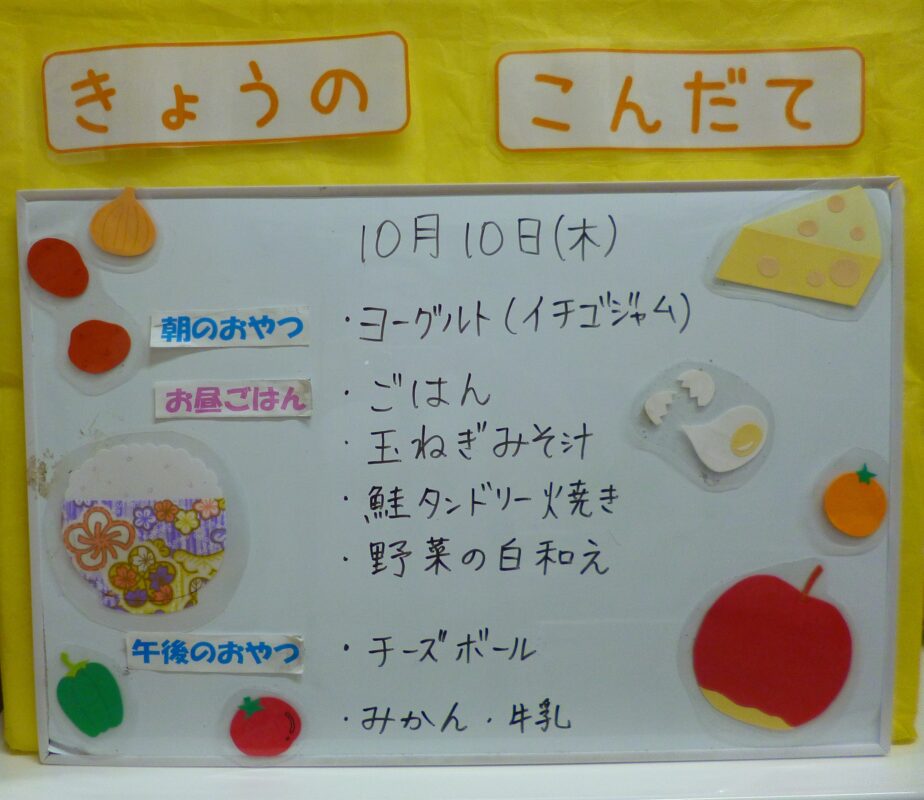 きょうの こんだて
10月10日(木)
朝のおやつ ・ヨーグルト(イチゴジャム)
お昼ごはん ・ごはん
・玉ねぎみそ汁
・鮭タンドリー焼き
・野菜の白和え
午後のおやつ ・チーズボール
・みかん・牛乳